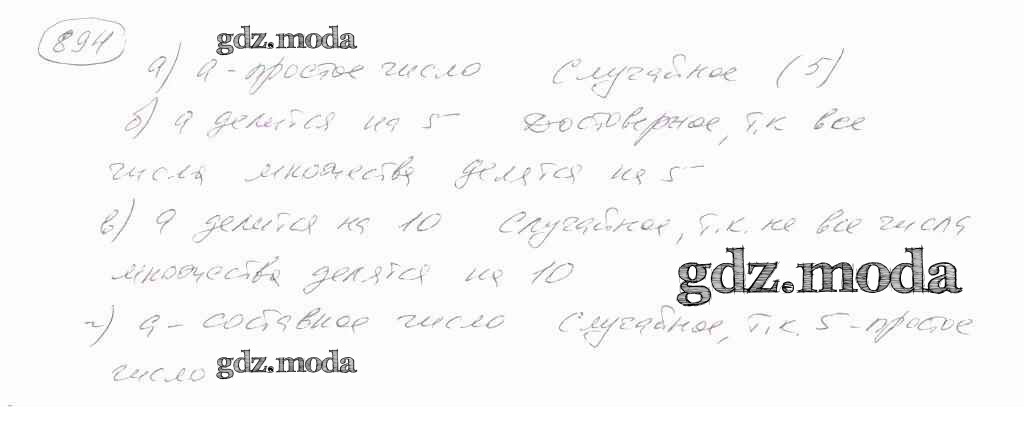 894
gdz.moda
а) а - простое число Случайное (5)
б) а делится на 5 Достоверное, т.к все
числа множества делятся на 5
в) а делится на 10 Случайное, т.к. не все числа
множества делятся на 10
gdz.moda
г) а - составное число Случайное, т.к. 5 - простое
число
gdz.moda